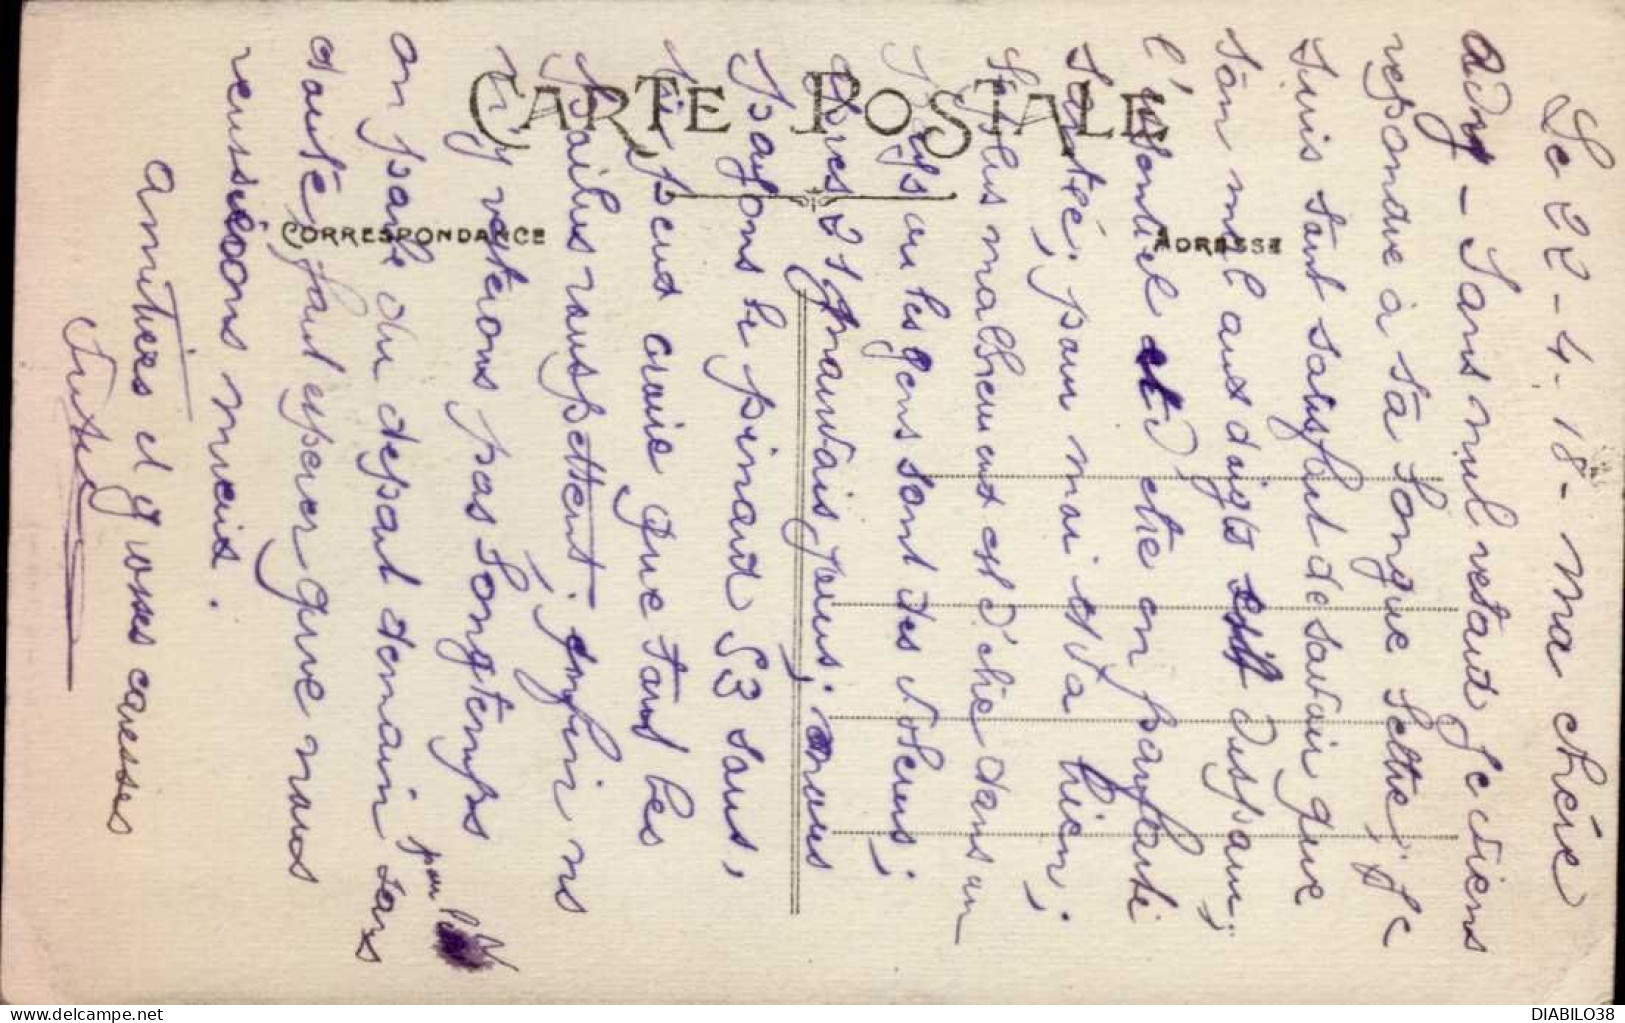 CARTE POSTALE
CORRESPONDANCE
ADRESSE
Le 22-4-18 - Ma chérie
Ady - Sans nul retard je viens
repondre à ta longue lettre, je
suis tant satisfait de savoir que
ton mal aux doigts est disparu,
l'essentiel est d'etre en parfaite
santé, pour moi et va bien,
le plus malheureux est d'etre dans un
Pays ou les gens sont des voleurs,
apres 21 mauvais jours, nous
payons le pinard 53 sous,
tu peux croire que tout les
poilus rouspettent. enfin ns
n'y resterons pas longtemps
on parle du depart demain pour l' sans
doute faut esperer que nous
reussirons mieux.
Amitiés et grosses caresses
DIABILO38